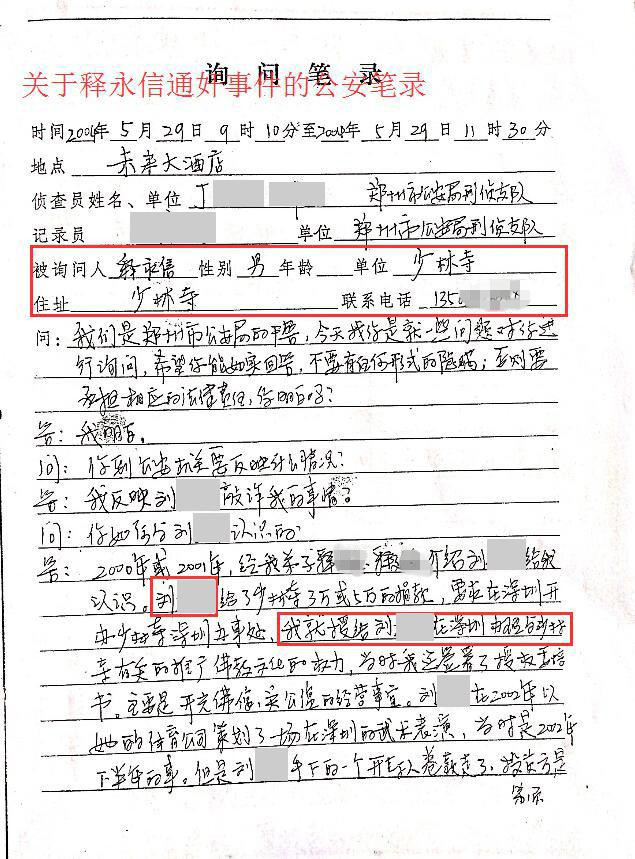 询问笔录
关于释永信通奸事件的公安笔录
时间2004年5月29日9时10分至2004年5月29日11时30分
地点 未来大酒店
侦查员姓名、单位 丁 郑州市公安局刑侦支队
记录员 单位 郑州市公安局刑侦支队
被询问人 释永信 性别 男 年龄 单位 少林寺
住址 少林寺 联系电话 135
问：我们是郑州市公安局的干警，今天找你是就一些问题对你进
行询问，希望你能如实回答，不要有任何形式的隐瞒；否则要
承担相应的法律责任，你明白吗？
答：我明白。
问：你到公安机关要反映什么情况？
答：我反映刘 敲诈我的事情？
问：你如何与刘 认识的
答：2000年或2001年，经我弟子释 释 介绍刘 给我
认识。刘 给了少林寺3万或5万的捐款，要求在深圳开
办少林寺深圳办事处，我就授给刘 在深圳办理与少林
寺有关的推广佛教文化的权力，当时我还签署了授权委托
书。主要是开光佛信 的经营事宜。刘 在2002年以
她的体育公司策划了一场在深圳的武术表演，当时是2002年
下半年的事。但是刘 手下的一个 卷款走了，投资方是